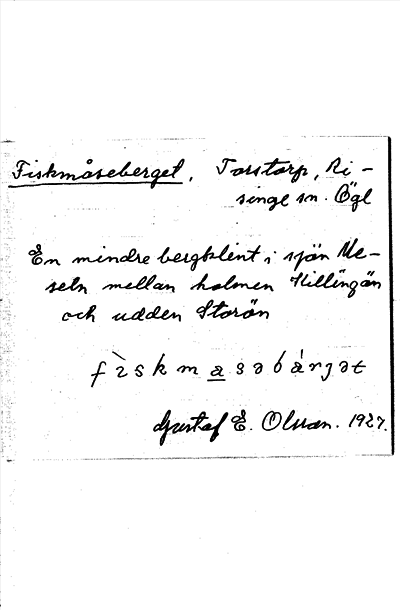 Fiskmåseberget, Torstorp, Ri-
singe sn. Ögl
En mindre bergklint i sjön Me-
seln mellan holmen Killingön
och udden Storön
fìskmasəbárjət
Gustaf E. Olsson. 1927.